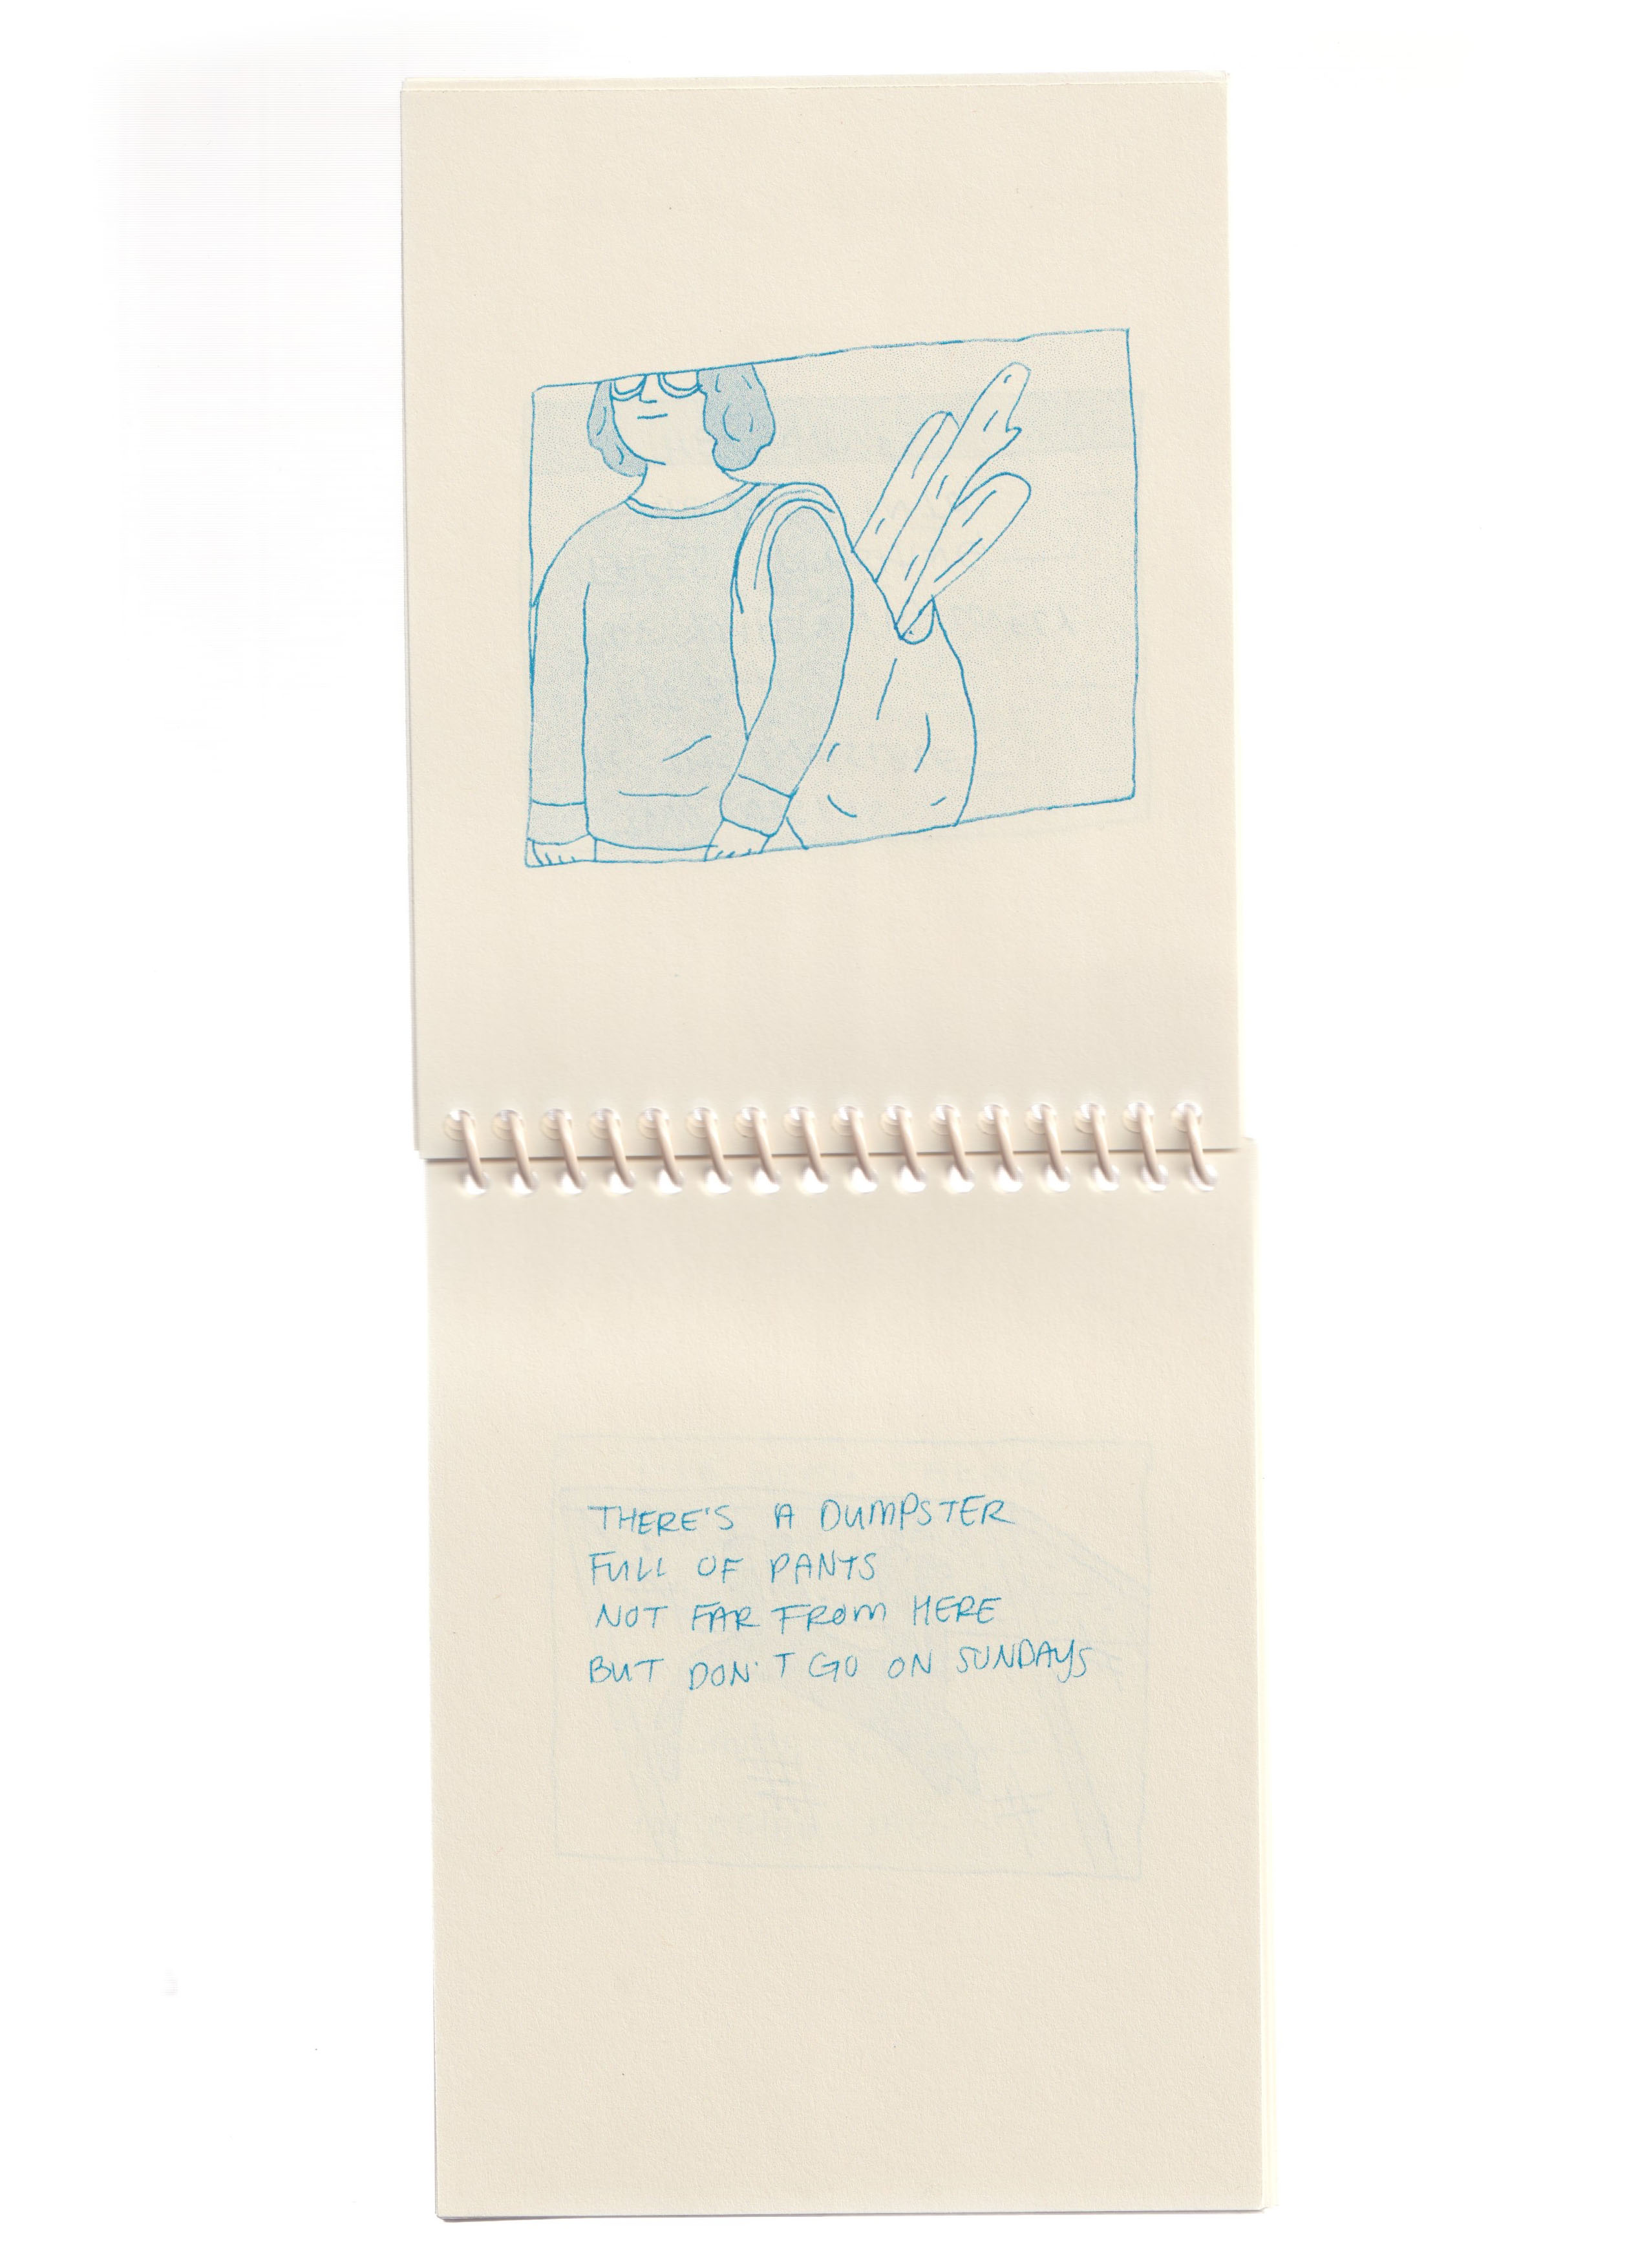 THERE'S A DUMPSTER
FULL OF PANTS
NOT FAR FROM HERE
BUT DON'T GO ON SUNDAYS